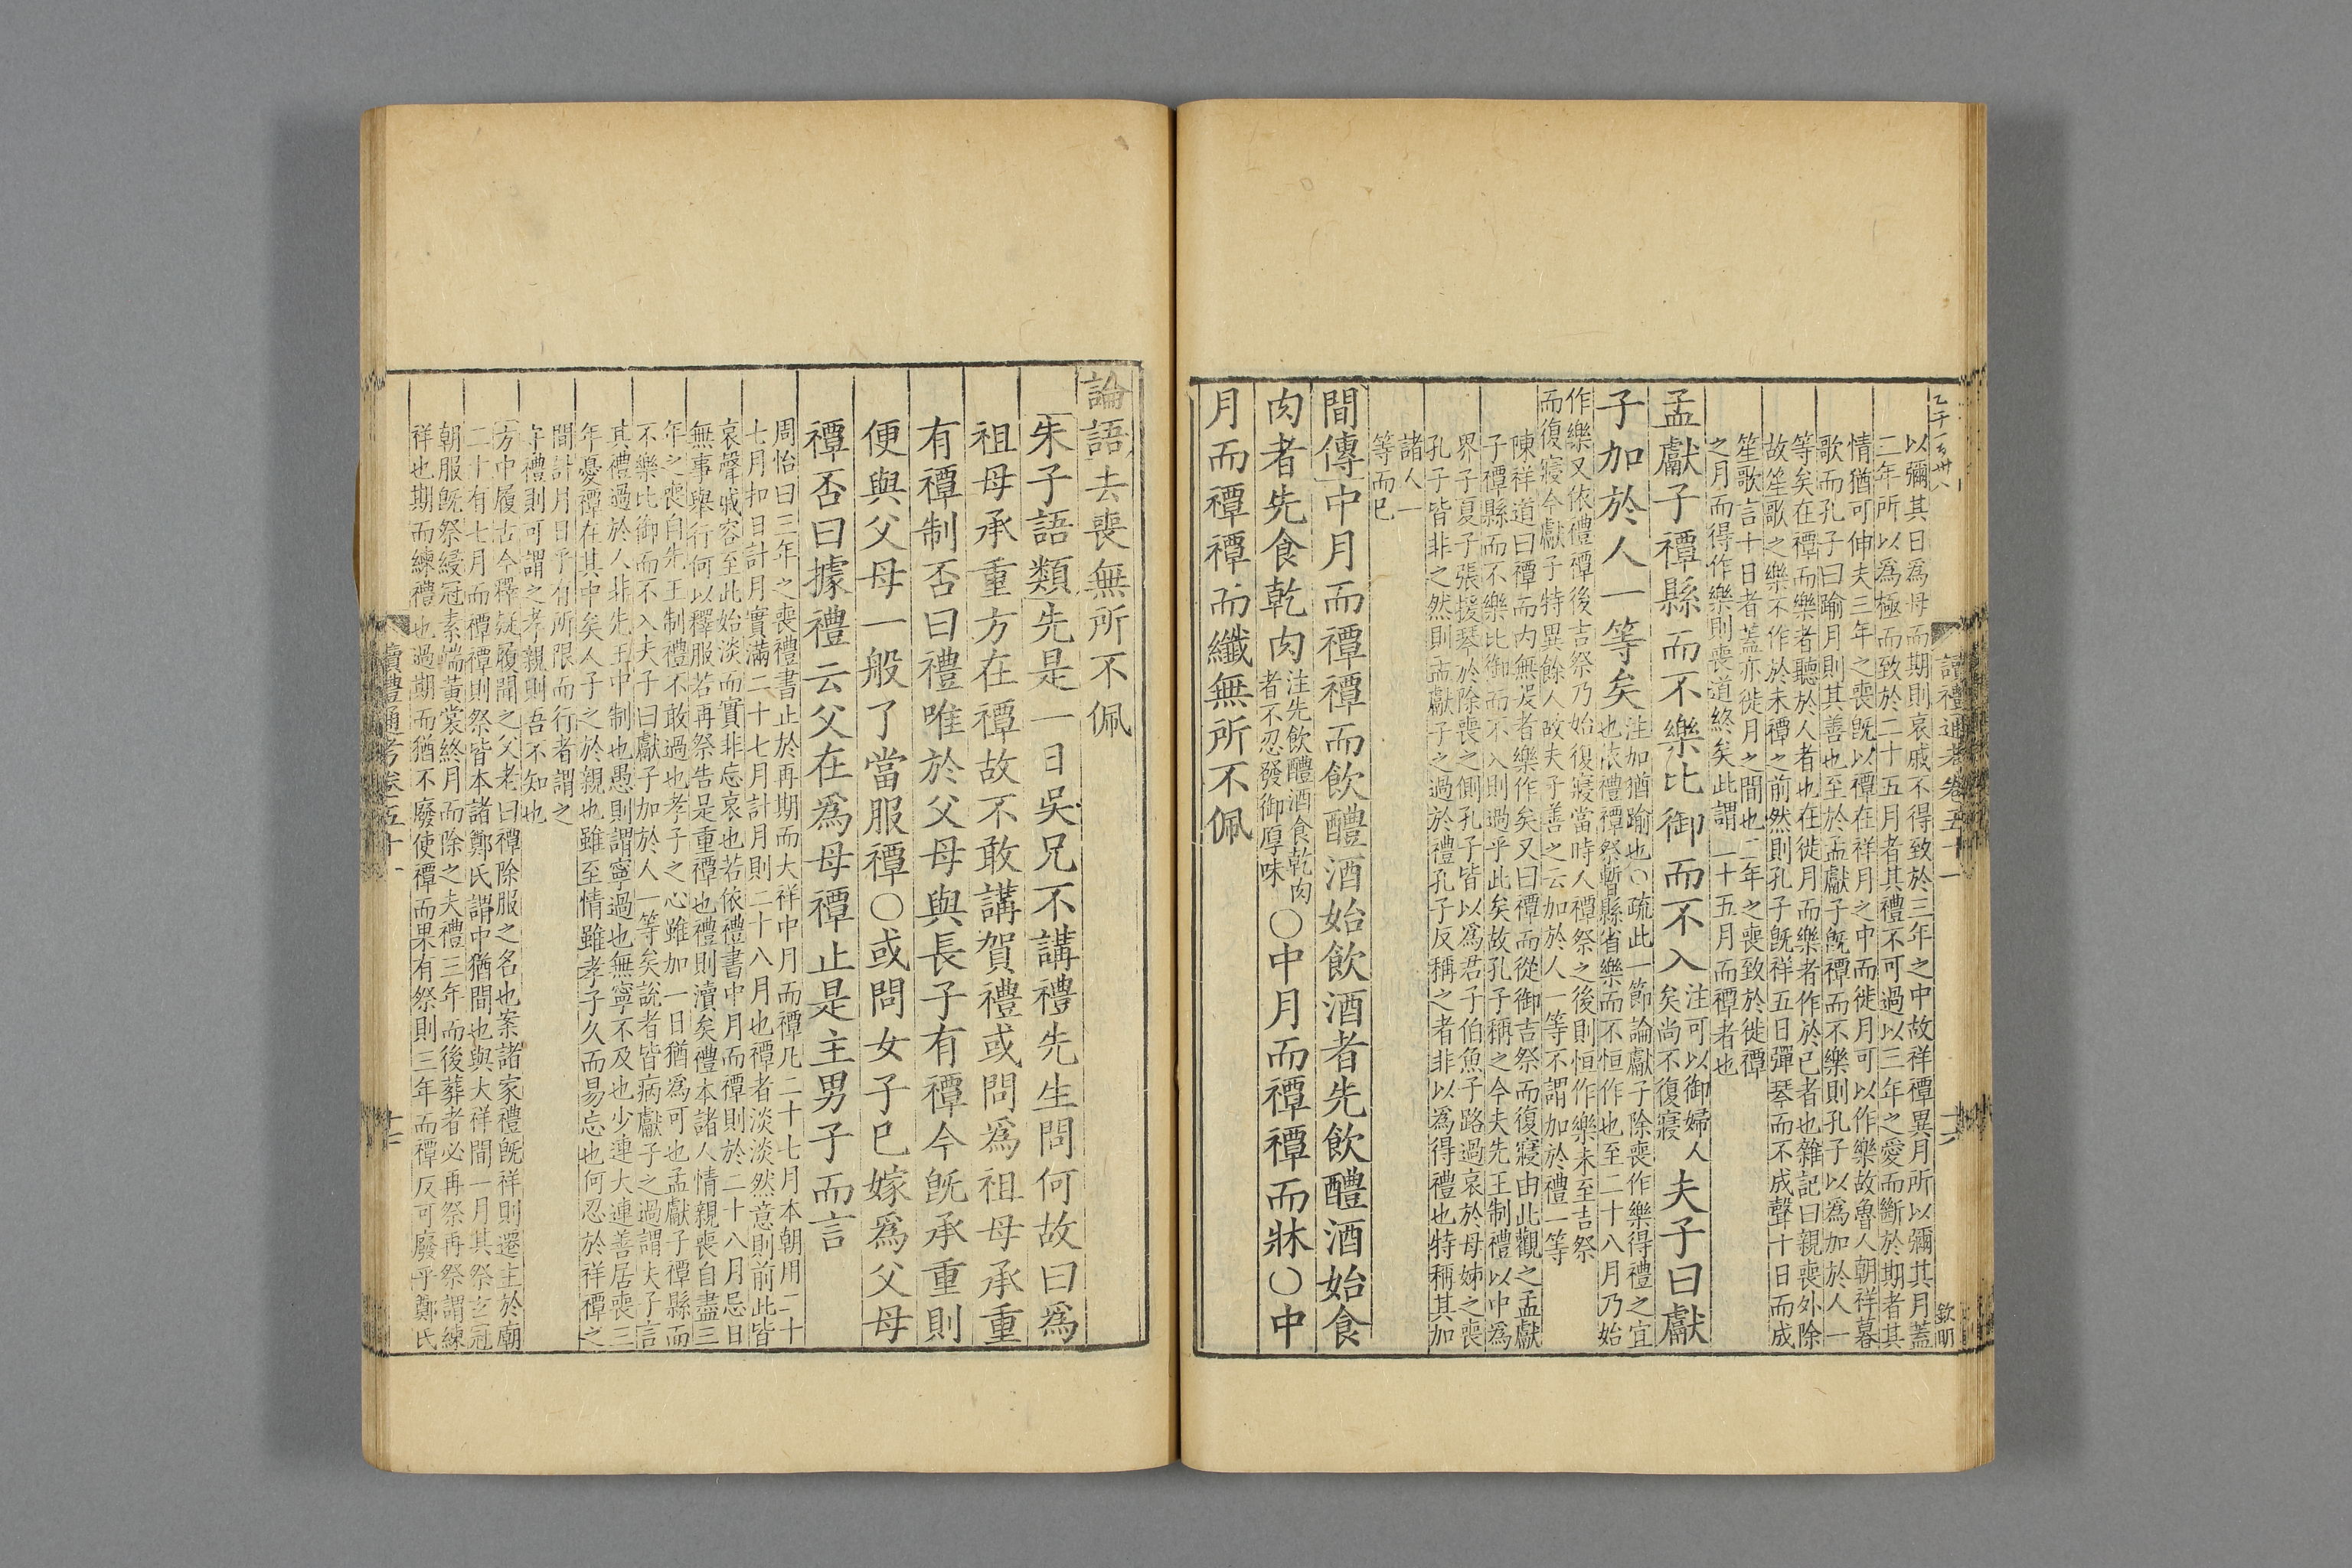 讀禮通考卷五十一
十六
欽明
以彌其日為母而期則哀戚不得致於三年之中故祥禫異月所以彌其月蓋
二年所以為極而致於二十五月者其禮不可過以三年之愛而斷於期者其
情猶可伸夫三年之喪旣以禫在祥月之中而徙月可以作樂故魯人朝祥暮
歌而孔子曰踰月則其善也至於孟獻子旣禫而不樂則孔子以為加於人一
等矣在禫而樂者聽於人者也在徙月而樂者作於已者也雜記曰親喪外除
故笙歌之樂不作於未禫之前然則孔子旣祥五日彈琴而不成聲十日而成
笙歌言十日者蓋亦徙月之間也二年之喪致於徙禫
之月而得作樂則喪道終矣此謂二十五月而禫者也
孟獻子禫縣而不樂比御而不入
注可以御婦人
矣尚不復寢
夫子曰獻
子加於人一等矣
注加猶踰也○疏此一節論獻子除喪作樂得禮之宜
也依禮禫祭暫縣省樂而不恒作也至二十八月乃始
作樂又依禮禫後吉祭乃始復寢當時人禫祭之後則恒作樂未至吉祭
而復寢今獻子特異餘人故夫子善之云加於人一等不謂加於禮一等
陳祥道曰禫而內無哭者樂作矣又曰禫而從御吉祭而復寢由此觀之孟獻
子禫縣而不樂比御而不入則過乎此矣故孔子稱之今夫先王制禮以中為
界子夏子張援琴於除喪之側孔子皆以為君子伯魚子路過哀於母姊之喪
孔子皆非之然則孟獻子之過於禮孔子反稱之者非以為得禮也特稱其加
諸人一
等而已
間傳中月而禫禫而飲醴酒始飲酒者先飲醴酒始食
肉者先食乾肉
注先飲醴酒食乾肉
者不忍發御厚味
○中月而禫禫而牀○中
月而禫禫而纖無所不佩
論語去喪無所不佩
朱子語類先是一日吳兄不講禮先生問何故曰為
祖母承重方在禫故不敢講賀禮或問為祖母承重
有禫制否曰禮唯於父母與長子有禫今旣承重則
便與父母一般了當服禫○或問女子已嫁為父母
禫否曰據禮云父在為母禫止是主男子而言
周怡曰三年之喪禮書止於再期而大祥中月而禫凡二十七月本朝用二十
七月扣日計月實滿二十七月計月則二十八月也禫者淡淡然意則前此皆
哀聲戚容至此始淡而實非忘哀也若依禮書中月而禫則於二十八月忌日
無事舉行何以釋服若再祭告是重禫也禮則瀆矣禮本諸人情親喪自盡三
年之喪自先王制禮不敢過也孝子之心雖加一日猶為可也孟獻子禫縣而
不樂比御而不入夫子曰獻子加於人一等矣說者皆病獻子之過謂夫子言
其禮過於人非先王中制也愚則謂寧過也無寧不及也少連大連善居喪三
年憂禫在其中矣人子之於親也雖至情雖孝子久而易忘也何忍於祥禫之
間計月日乎有所限而行者謂之
守禮則可謂之孝親則吾不知也
方中履古今釋疑履聞之父老曰禫除服之名也案諸家禮旣祥則遷主於廟
二十有七月而禫禫則祭皆本諸鄭氏謂中猶間也與大祥間一月其祭玄冠
朝服旣祭綅冠素端黃裳終月而除之夫禮三年而後葬者必再祭再祭謂練
祥也期而練禮也過期而猶不廢使禫而果有祭則三年而禫反可廢乎鄭氏
讀禮通考卷五十一